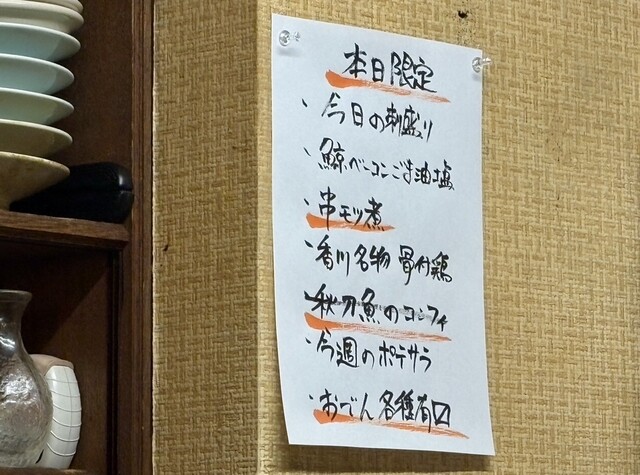 本日限定
・今日の刺盛り
・鯨ベーコンごま油塩
・串モツ煮
・香川名物 骨付鶏
・秋刀魚のコンフィ
・今週のポテサラ
・おでん各種有口